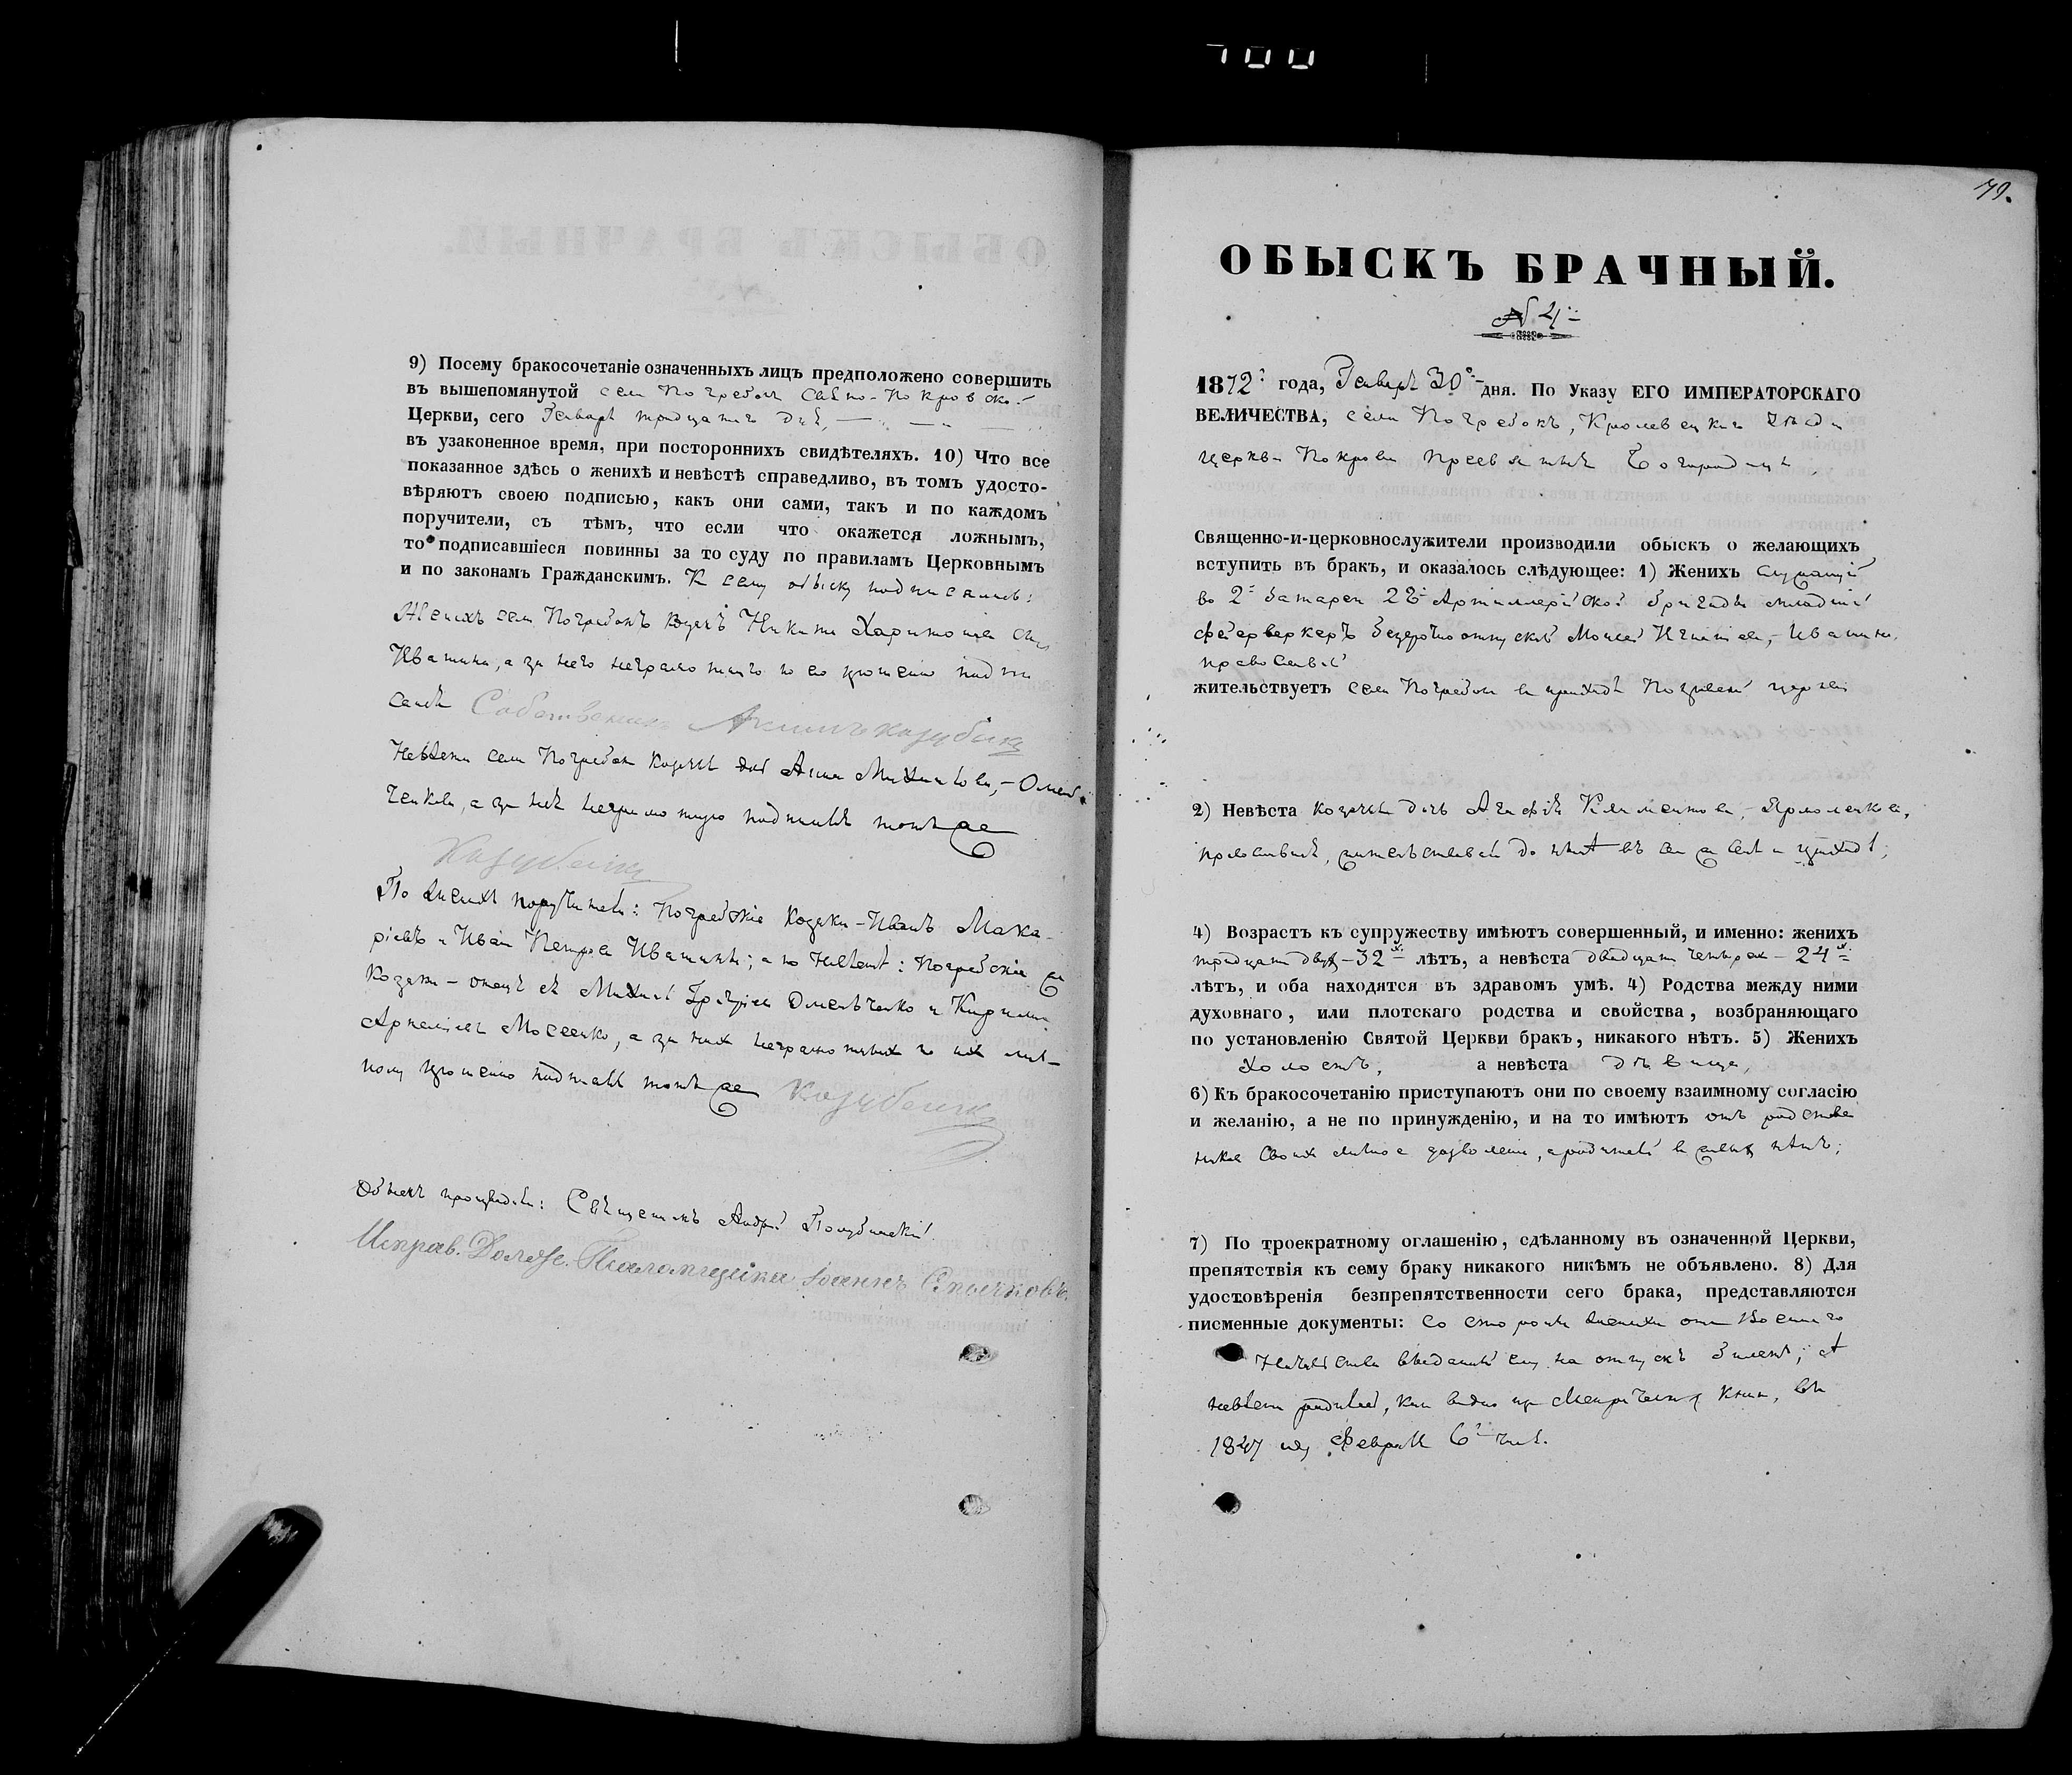 700
9) Посему бракосочетаніе означенныхъ лицъ предположено совершить
въ вышепомянутой села Погребокъ Свято-Покровской
Церкви, сего Генваря тридцатаго дня,
въ узаконенное время, при постороннихъ свидѣтеляхъ. 10) Что все
показанное здѣсь о женихѣ и невѣстѣ справедливо, въ томъ удосто-
вѣряютъ своею подписью, какъ они сами, такъ и по каждомъ
поручители, съ тѣмъ, что если что окажется ложнымъ,
то подписавшіеся повинны за то суду по правиламъ Церковнымъ
и по законамъ Гражданскимъ. К сему обыску подписались:
Женихъ села Погребокъ козакъ Никита Харитоновъ сынъ
Ивашина, а за него неграмотнаго по его прошенію подпи
салъ Собственникъ
Невѣста села Погребокъ козачья дочь Анна Михайлова, - Омель
ченкова, а за неѣ неграмотную подписалъ тотъ же
По женихѣ поручители: Погребскіе Козаки - Иванъ Мака-
ріевъ и Иванъ Петровъ Ивашины; а по невѣстѣ: Погребскіе же
Козаки - отецъ еѣ Михаилъ Григоріевъ Омельченко и Кирилъ
Моссенко, а за них неграмотных по их лич-
ному прошенію подписалъ тотъ же
Обыскъ производили: Священникъ Андрей
Исправ. Долж. Псаломщика Іоаннъ
79.
ОБЫСКЪ БРАЧНЫЙ.
№ 4й
1872 года, Генваря 30 дня. По Указу ЕГО ИМПЕРАТОРСКАГО
ВЕЛИЧЕСТВА, села Погребокъ, Кролевецкаго уѣзда
церкви Покрова Пресвятыя Богородицы,
Священно-и-церковнослужители производили обыскъ о желающихъ
вступить въ бракъ, и оказалось слѣдующее: 1) Женихъ служащій
во 2й батареи 28й Артиллерійской бригады младшій
фейерверкеръ безсрочноотпускной Моисей Игнатіевъ, - Ивашина,
православный
жительствуетъ села Погребокъ въ приходѣ Покровской церкви
2) Невѣста козачья дочь Агафія Климентова, - Ярмоленкова,
православная, жительствовала до нынѣ въ семъ же селѣ и приходѣ;
4) Возрастъ къ супружеству имѣютъ совершенный, и именно: женихъ
тридцати двухъ - 32х лѣтъ, а невѣста двадцати четырех - 24х
лѣтъ, и оба находятся въ здравомъ умѣ. 4) Родства между ними
духовнаго, или плотскаго родства и свойства, возбраняющаго
по установленію Святой Церкви бракъ, никакого нѣтъ. 5) Женихъ
Холостъ, а невѣста дѣвица,
6) Къ бракосочетанію приступаютъ они по своему взаимному согласію
и желанію, а не по принужденію, и на то имѣютъ отъ родстве
никовъ своихъ личное дозволеніе, а родителей в живых нѣтъ;
7) По троекратному оглашенію, сдѣланному въ означенной Церкви,
препятствія къ сему браку никакого никѣмъ не объявлено. 8) Для
удостовѣренія безпрепятственности сего брака, представляются
писменные документы: Со стороны жениха отъ Военнаго
Начальства выданный ему на отпускъ билетъ; а
невѣста родилась, какъ видно из Метрическихъ книгъ, въ
1847 году Февраля 6го числ.